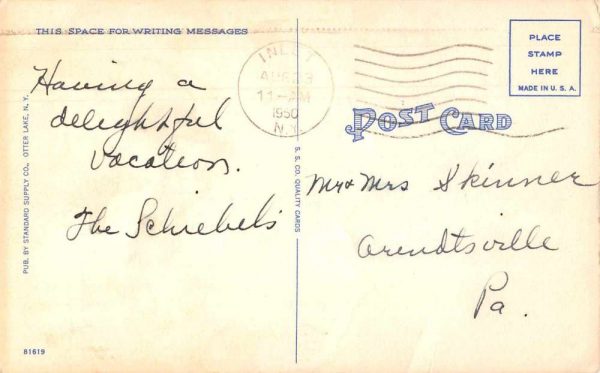 THIS SPACE FOR WRITING MESSAGES
Having a
delightful
vacation.
The Schiebels
PUB. BY STANDARD SUPPLY CO., OTTER LAKE, N. Y.
81619
INLET
AUG 23
11-AM
1950
N.Y.
S. S. CO. QUALITY CARDS
PLACE
STAMP
HERE
MADE IN U. S. A.
POST CARD
Mr & Mrs Skinner
Arendtsville
Pa.